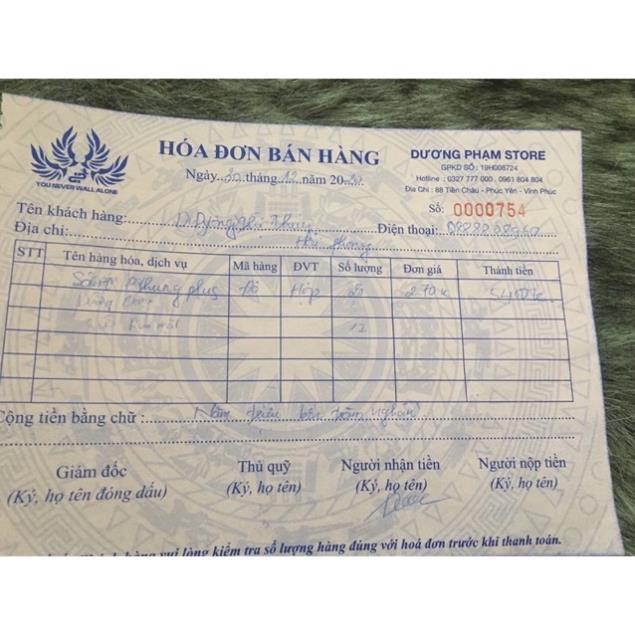 YOU NEVER WALL ALONE
HÓA ĐƠN BÁN HÀNG
Ngày 30 tháng 12 năm 2020
DƯƠNG PHẠM STORE
GPKD SỐ : 19H006724
Hotline : 0327 777 000 . 0961 804 804
Địa Chỉ : 88 Tiền Châu - Phúc Yên - Vĩnh Phúc
Số: 0000754
Tên khách hàng:
Điện thoại:
Địa chỉ: Hải Phòng
STT Tên hàng hóa, dịch vụ Mã hàng ĐVT Số lượng Đơn giá Thành tiền
phụng plus đỏ Hộp 20 270k
12
Cộng tiền bằng chữ : Năm triệu bốn trăm nghìn
Giám đốc Thủ quỹ Người nhận tiền Người nộp tiền
(Ký, họ tên đóng dấu) (Ký, họ tên) (Ký, họ tên) (Ký, họ tên)
vui lòng kiểm tra số lượng hàng đúng với hoá đơn trước khi thanh toán.